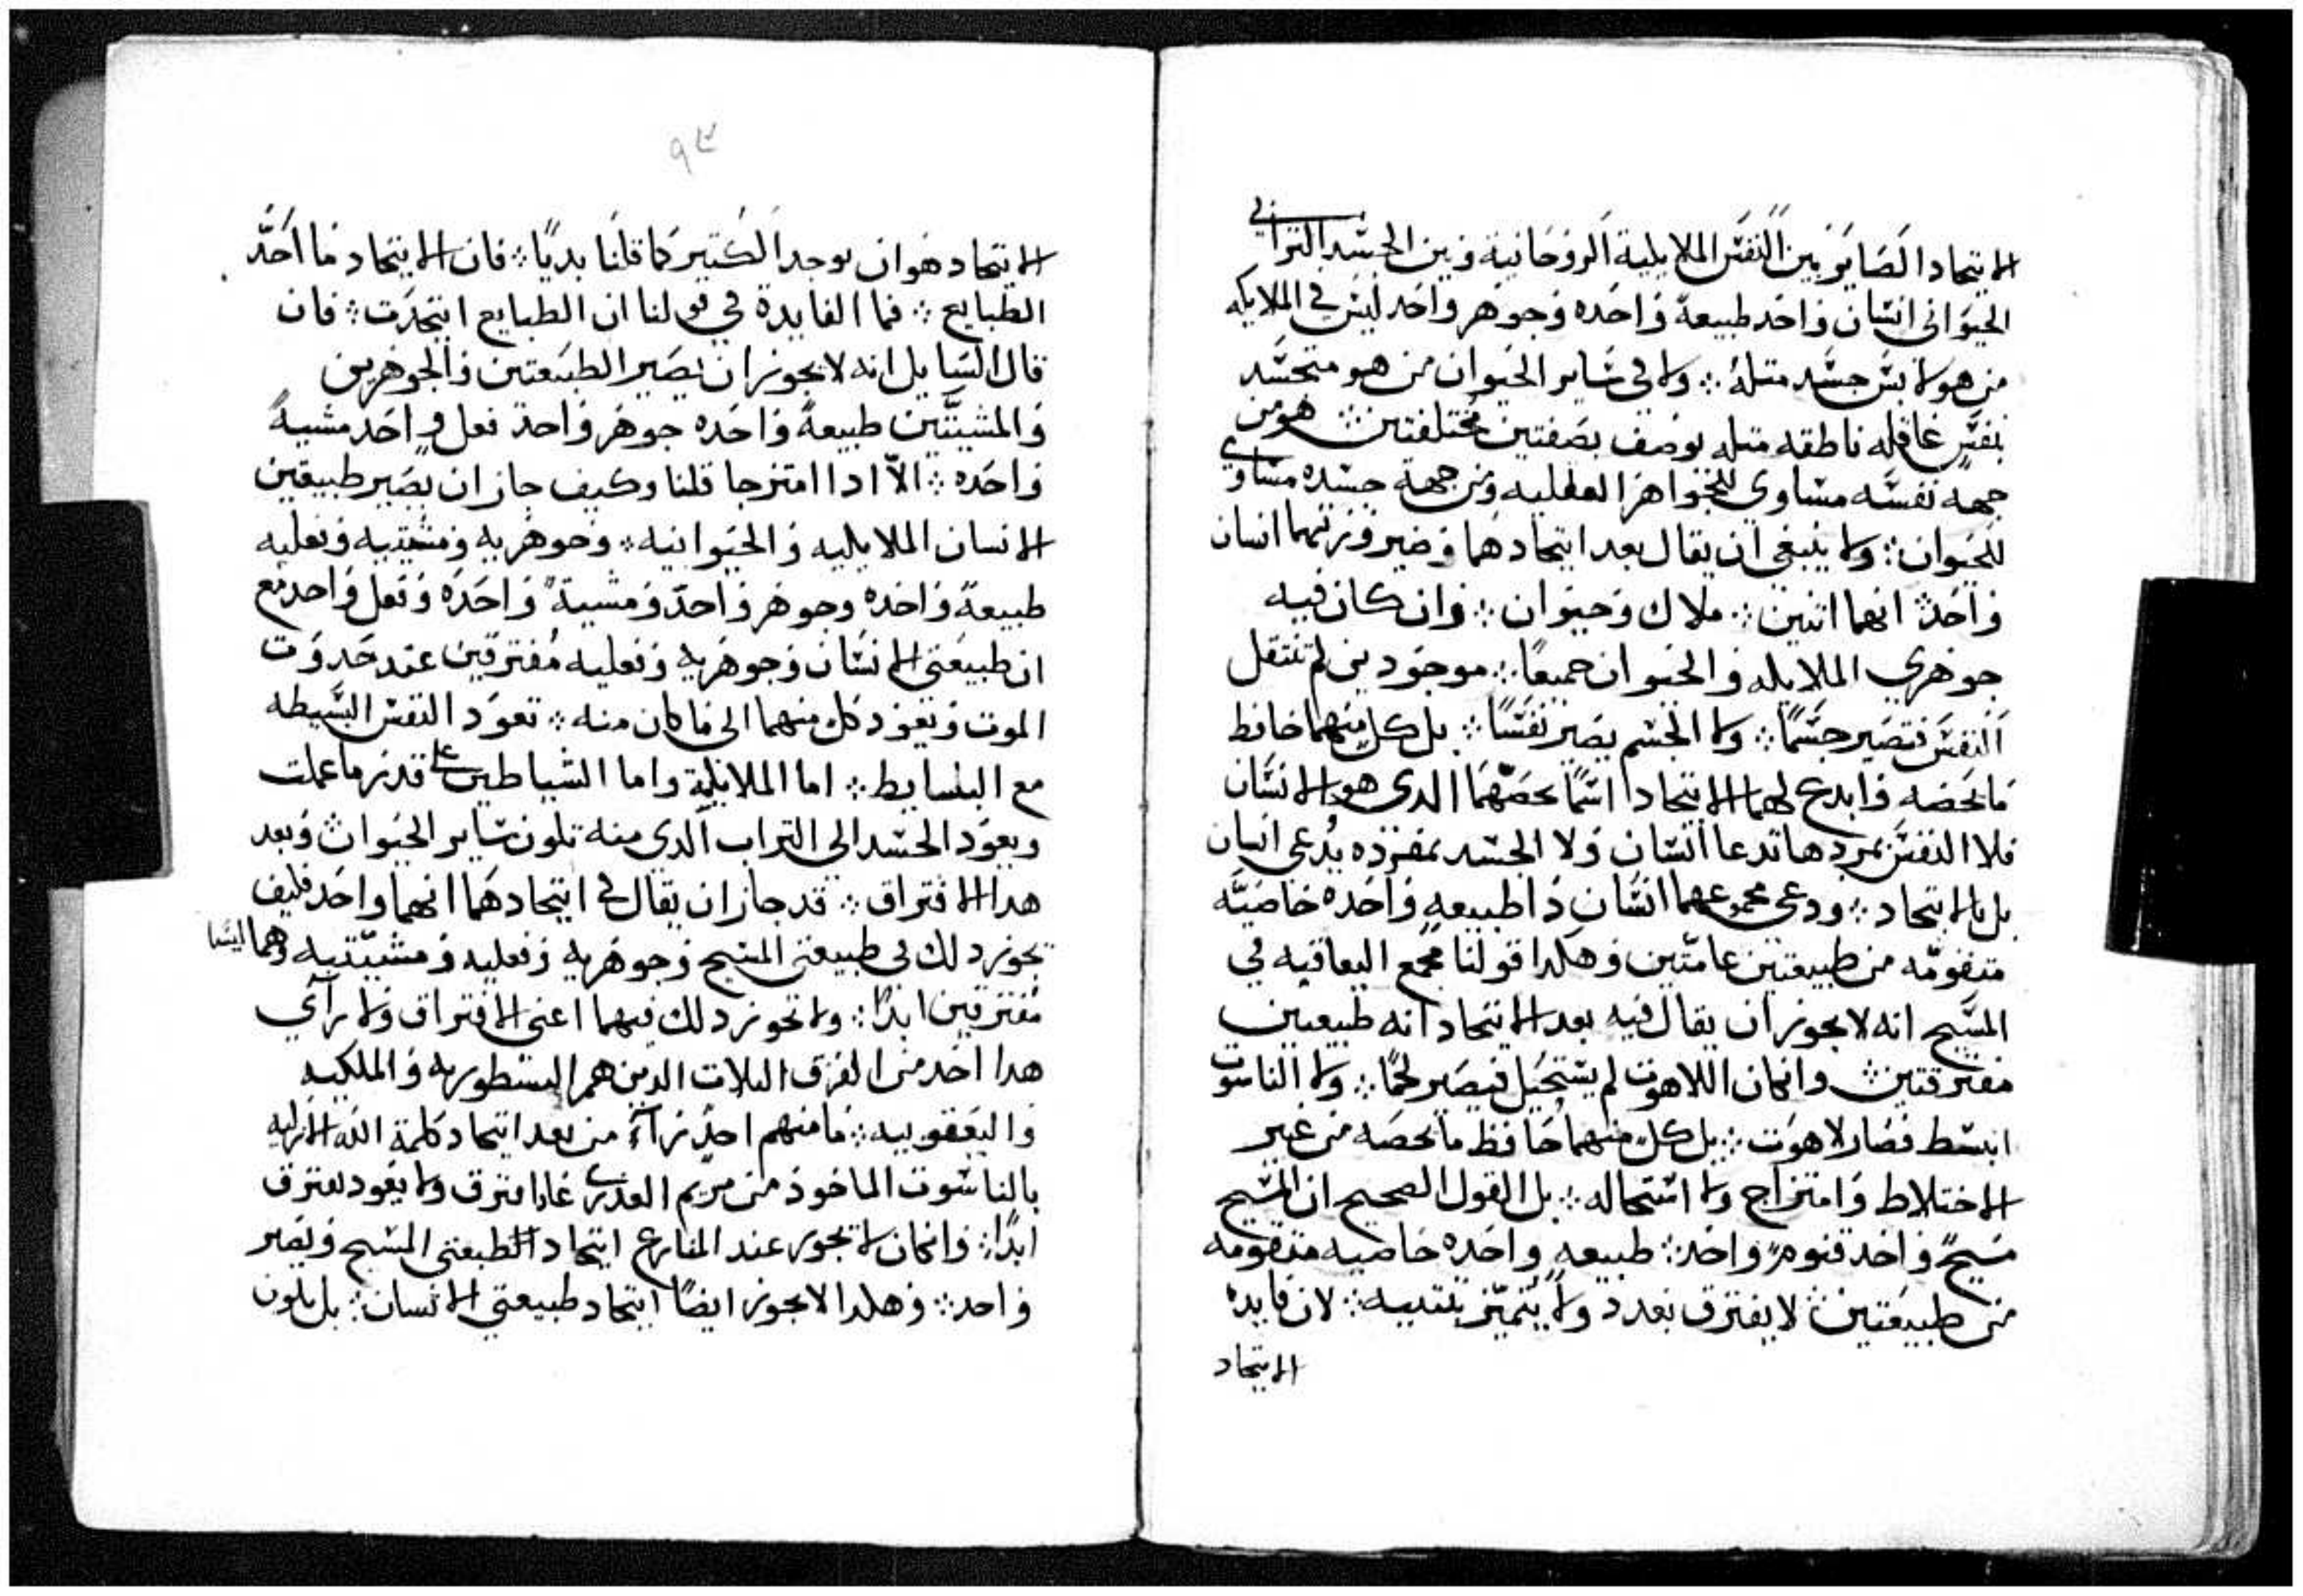 الاتحاد الصاير بين النفس الملايكية الروحانية وبين الجسد الترابي
الحيواني انسان واحد طبيعة واحده وجوهر واحد ليس في الملايكه
من هو لابس جسد مثله ولا في ساير الحيوان من هو متجسد
بنفس عاقله ناطقه مثله يوصف بصفتين مختلفتين هو من
جهة نفسه مساوي للجواهر العقليه ومن جهة جسده مساوي
للحيوان ولا ينبغي ان يقال بعد اتحادهما انسان
واحد انهما اثنين ملاك وحيوان وان كان فيه
جوهري الملايكه والحيوان جميعًا موجودين لم تنتقل
النفس فتصير جسمًا ولا الجسم يصير نفسًا بل كل منهما حافظ
ما يخصه وابدع لهما الاتحاد اسمًا يخصهما الدي هو الانسان
فلا النفس بمفردها تدعا انسان ولا الجسد بمفرده يدعى انسان
بل بالاتحاد ودعي مجموعهما انسان دا طبيعه واحده خاصيه
متقومه من طبيعتين عامتين وهكدا قولنا مجمع اليعاقبه في
المسيح انه لا يجوز ان يقال فيه بعد الاتحاد انه طبيعتين
مفترقتين وان كان اللاهوت لم يستحيل فيصير لحمًا ولا الناسوت
انبسط فصار لاهوت بل كل منهما حافظ ما يخصه من غير
الاختلاط وامتزاج ولا استحاله بل القول الصحيح ان المسيح
مسيح واحد قنوم واحد طبيعه واحده خاصيه متقومه
من طبيعتين لا يفترق بعدد ولا يتميز بتثنيه لان فايده
الاتحاد
٩٣
الاتحاد هو ان يوحد الكتير كما قلنا بديًا فان الاتحاد ما احد
الطبايع فما الفايدة في قولنا ان الطبايع اتحدت فان
قال السايل انه لا يجوز ان يصير الطبيعتين والجوهرين
والمشيتين طبيعة واحده جوهر واحد فعل واحد مشية
واحده الا ادا امتزجا قلنا وكيف جاز ان يصير طبيعتين
الانسان الملايكيه والحيوانيه وجوهريه ومشيتيه وفعليه
طبيعة واحده وجوهر واحد ومشية واحده وفعل واحد مع
ان طبيعتي الانسان وجوهريه وفعليه مفترقين عند حدوت
الموت وتعود كل منهما الى ما كان منه تعود النفس البسيطه
مع البسايط اما الملايكية واما الشياطين على قدر ما عملت
ويعود الجسد الى التراب الدي منه تكون ساير الحيوان وبعد
هدا الافتراق قد جاز ان يقال في اتحادهما انهما واحد فكيف
يجوز دلك في طبيعتي المسيح وجوهريه وفعليه ومشيتيه وهما ليسا
مفترقين ابدًا ولا يجوز دلك فيهما اعني الافتراق ولا راي
هدا احد من الفرق التلات الدين هم النسطوريه والملكيه
واليعقوبيه فما منهم احد رآى من بعد اتحاد كلمة الله الازليه
بالناسوت الماخوذ من مريم العدرى عاد افترق ولا يعود يفترق
ابدًا وان كان لا يجوز عند المنازع اتحاد الطبعتي المسيح ويصير
واحد وهكدا لا يجوز ايضًا اتحاد طبيعتي الانسان بل يكون